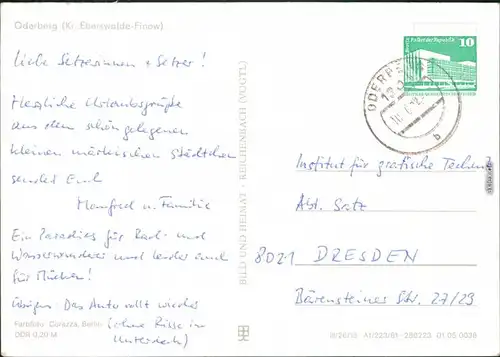 Oderberg (Kr. Eberswalde-Finow)
Liebe Setzerinnen + Setzer!
Herzliche Urlaubsgrüße
aus dem schön gelegenen
kleinen märkischen Städtchen
sendet Euch
Manfred u. Familie
Ein Paradies für Rad- und
Wasserwanderer und leider auch
für Mücken!
Übrigens Das Auto rollt wieder
(ohne Risse im
Unterdeck)
Farbfoto: Corazza, Berlin
DDR 0,20 M
BILD UND HEIMAT · REICHENBACH (VOGTL)
10
Palast der Republik
ODERBERG
b
Institut für grafische Technik
Abt. Satz
8021 DRESDEN
Bärensteiner Str. 27/29
A1/223/81-280223 01 05 0038